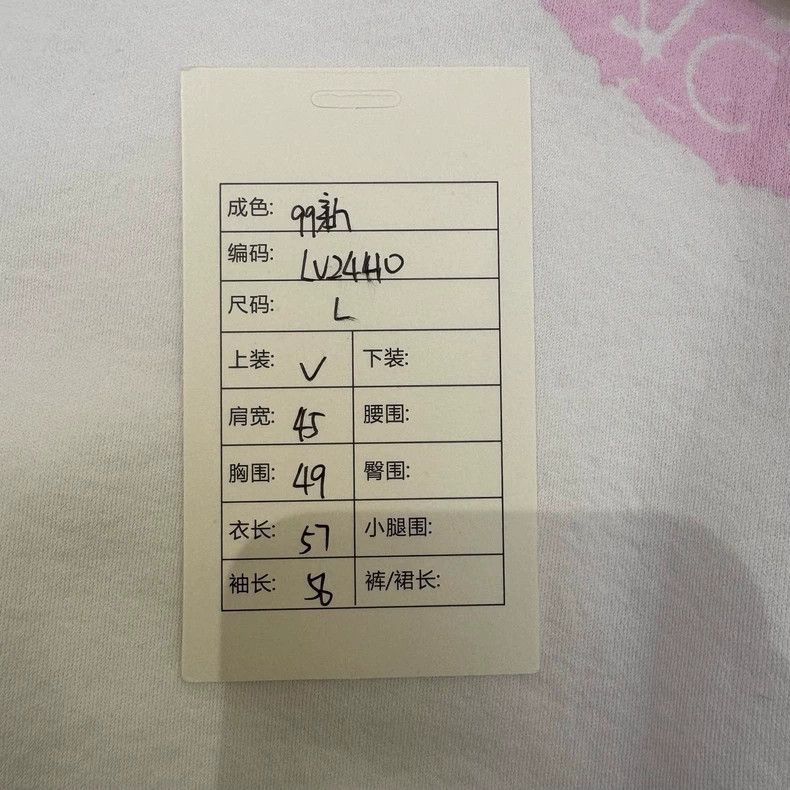 成色: 99新
编码: LV24410
尺码: L
上装: V 下装:
肩宽: 45 腰围:
胸围: 49 臀围:
衣长: 57 小腿围:
袖长: 56 裤/裙长: